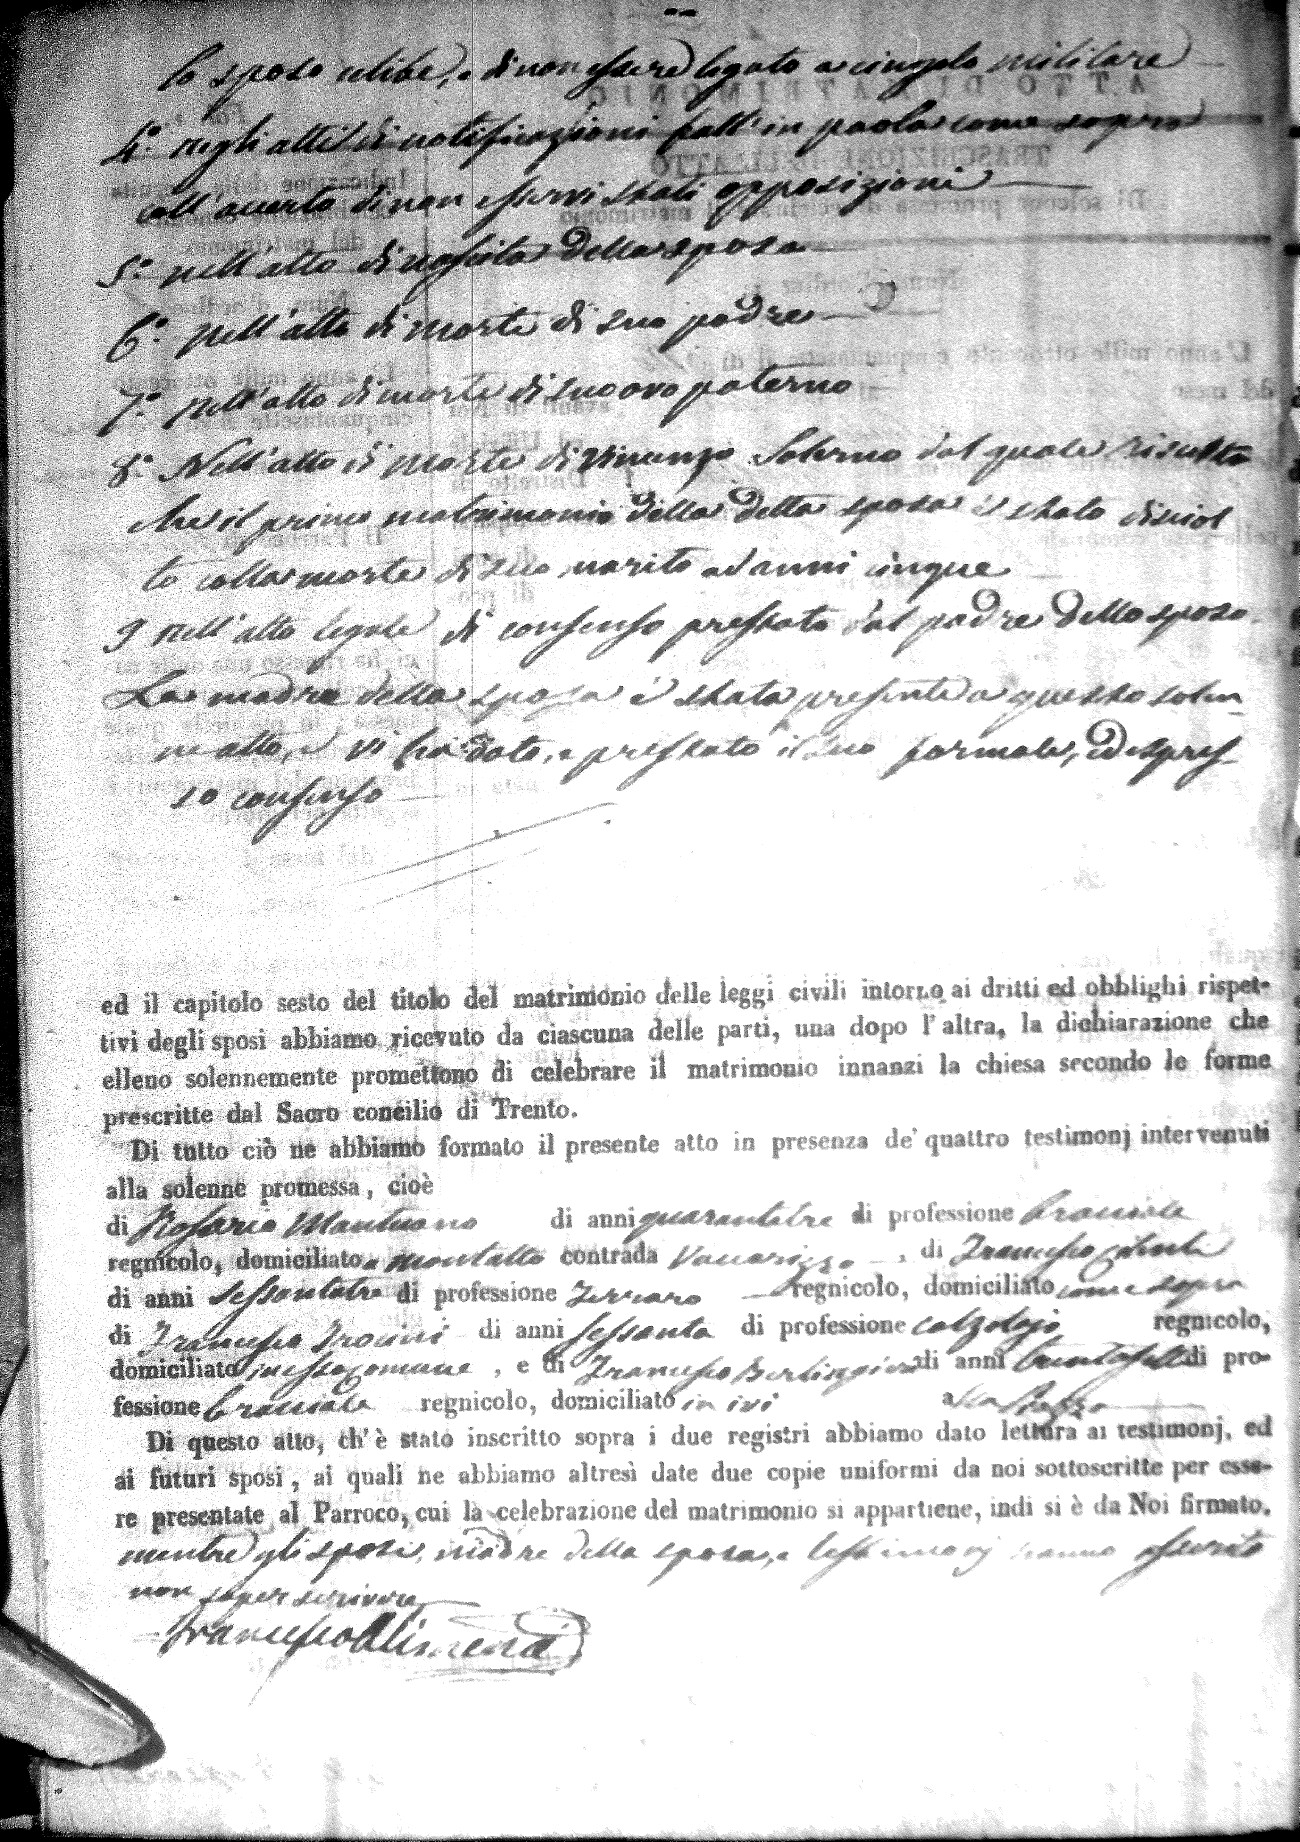 lo sposo celibe, e di non essere legato a cingolo militare
4.° negli atti di notificazioni fatt' in paola come sopra
coll' accerto di non esservi stati opposizioni
5.° nell' atto di nascita della sposa
6.° nell' atto di morte di suo padre
7.° nell' atto di morte di suo avo paterno
8.° Nell' atto di morte di Vincenzo Salerno dal quale risulta
che il primo matrimonio della detta sposa è stato disciol
to colla morte di suo marito ad anni cinque
9 nell' atto legale di consenso prestato dal padre dello sposo.
La madre della sposa è stata presente a questo solen
ne atto, e vi ha dato, e prestato il suo formale, ed espres
so consenso
ed il capitolo sesto del titolo del matrimonio delle leggi civili intorno ai dritti ed obblighi rispet-
tivi degli sposi abbiamo ricevuto da ciascuna delle parti, una dopo l'altra, la dichiarazione che
elleno solennemente promettono di celebrare il matrimonio innanzi la chiesa secondo le forme
prescritte dal Sacro concilio di Trento.
Di tutto ciò ne abbiamo formato il presente atto in presenza de' quattro testimonj intervenuti
alla solenne promessa, cioè
di Rosario Mantuano di anni quarantatre di professione bracciale
regnicolo, domiciliato a montalto contrada Vaccarizzo, di Francesco
di anni sessantatre di professione Ferraro regnicolo, domiciliato come sopra
di Francesco di anni sessanta di professione calzolajo regnicolo,
domiciliato in esso Comune, e di Francesco Berlingieri di anni di pro-
fessione bracciale regnicolo, domiciliato in ivi
Di questo atto, ch'è stato inscritto sopra i due registri abbiamo dato lettura ai testimonj, ed
ai futuri sposi, ai quali ne abbiamo altresì date due copie uniformi da noi sottoscritte per esse-
re presentate al Parroco, cui la celebrazione del matrimonio si appartiene, indi si è da Noi firmato.
mentre gli sposi, madre della sposa, e testimonj hanno asserito
non saper scrivere
Francesco Alimena